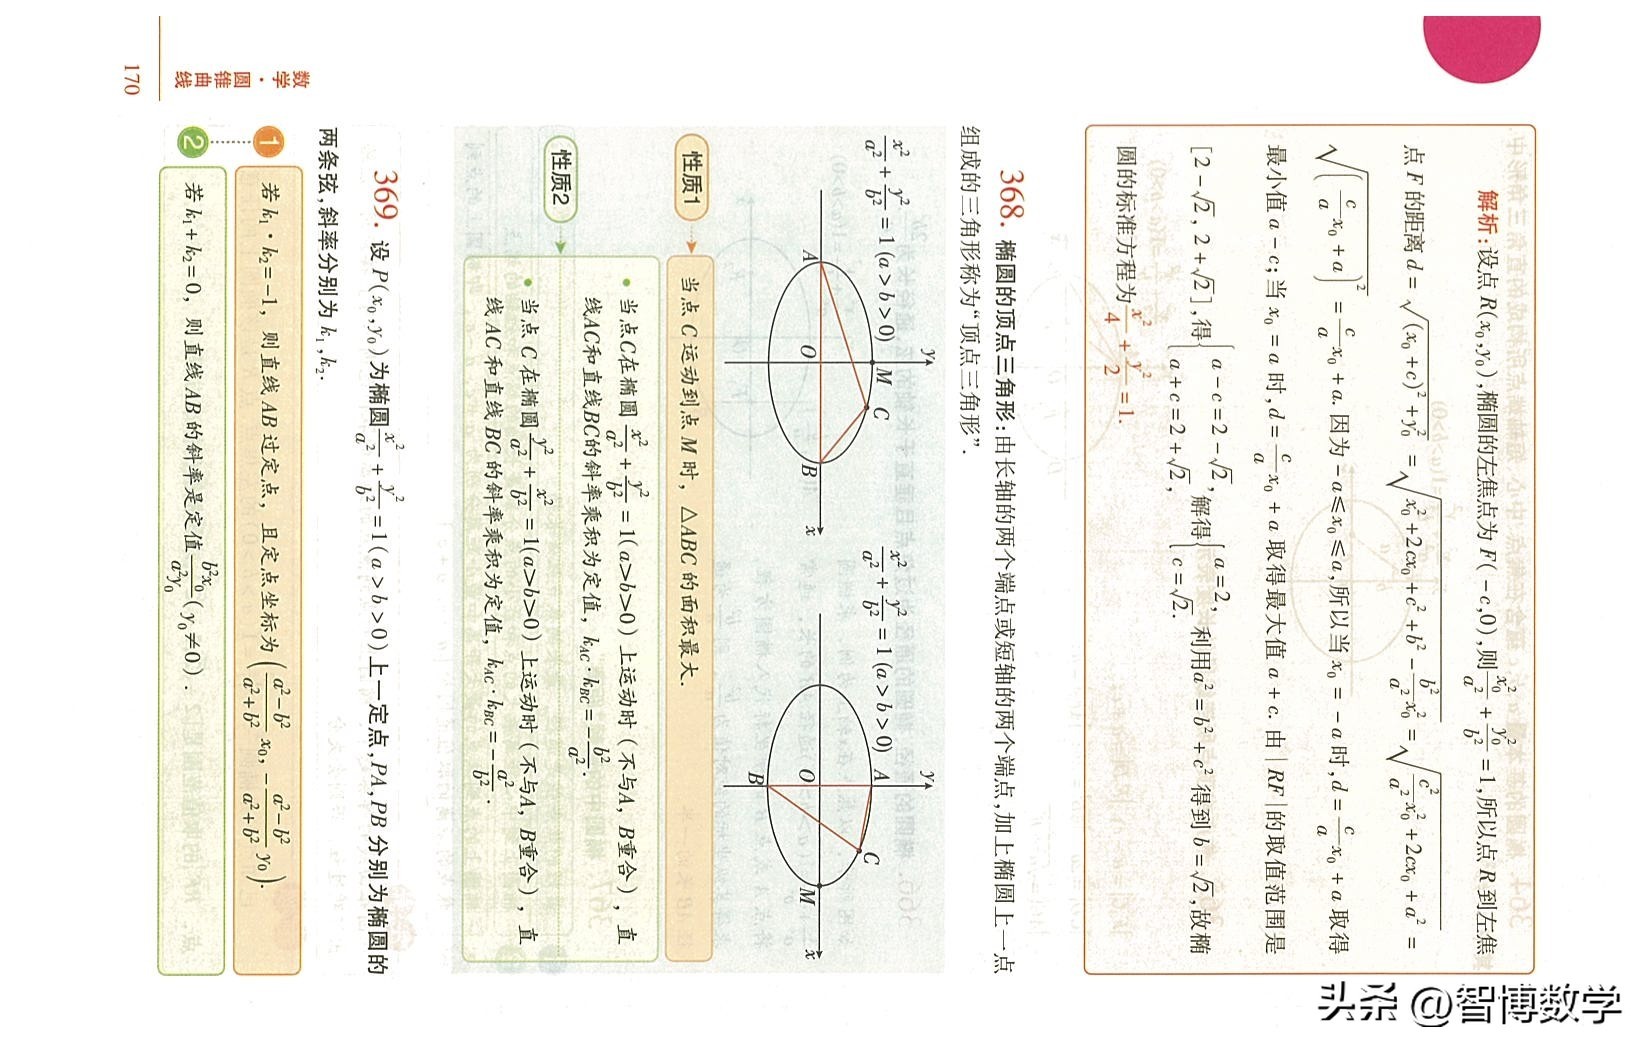 解析:设点 R(x₀,y₀),椭圆的左焦点为 F(-c,0),则x₀²/a²+y₀²/b²=1,所以点 R 到左焦
点 F 的距离 d=√((x₀+c)²+y₀²)=√(x₀²+2cx₀+c²+b²-b²/a²x₀²)=√(c²/a²x₀²+2cx₀+a²)=
√((c/a x₀+a)²)=c/a x₀+a. 因为-a≤x₀≤a,所以当 x₀=-a 时,d=c/a x₀+a 取得
最小值 a-c;当 x₀=a 时,d=c/a x₀+a 取得最大值 a+c. 由|RF|的取值范围是
[2-√2,2+√2],得{a-c=2-√2, a+c=2+√2, 解得{a=2, c=√2. 利用a²=b²+c²得到 b=√2,故椭
圆的标准方程为x²/4+y²/2=1.
368. 椭圆的顶点三角形:由长轴的两个端点或短轴的两个端点,加上椭圆上一点
组成的三角形称为“顶点三角形”.
x²/a²+y²/b²=1(a>b>0)
y
M
C
A
O
B
x
x²/a²+y²/b²=1(a>b>0)
y
A
C
O
M
x
B
性质1
当点 C 运动到点 M 时，△ABC 的面积最大.
性质2
• 当点C在椭圆x²/a²+y²/b²=1(a>b>0)上运动时（不与A，B重合），直
线AC和直线BC的斜率乘积为定值，k_AC·k_BC=-b²/a².
• 当点 C 在椭圆y²/a²+x²/b²=1(a>b>0)上运动时（不与A，B重合），直
线 AC 和直线 BC 的斜率乘积为定值，k_AC·k_BC=-a²/b².
369. 设 P(x₀,y₀)为椭圆x²/a²+y²/b²=1(a>b>0)上一定点,PA,PB 分别为椭圆的
两条弦,斜率分别为 k₁,k₂.
1 若 k₁·k₂=-1，则直线 AB 过定点，且定点坐标为((a²-b²)/(a²+b²)x₀,-(a²-b²)/(a²+b²)y₀).
2 若 k₁+k₂=0，则直线 AB 的斜率是定值b²x₀/a²y₀(y₀≠0).
数学·圆锥曲线
170
头条 @智博数学